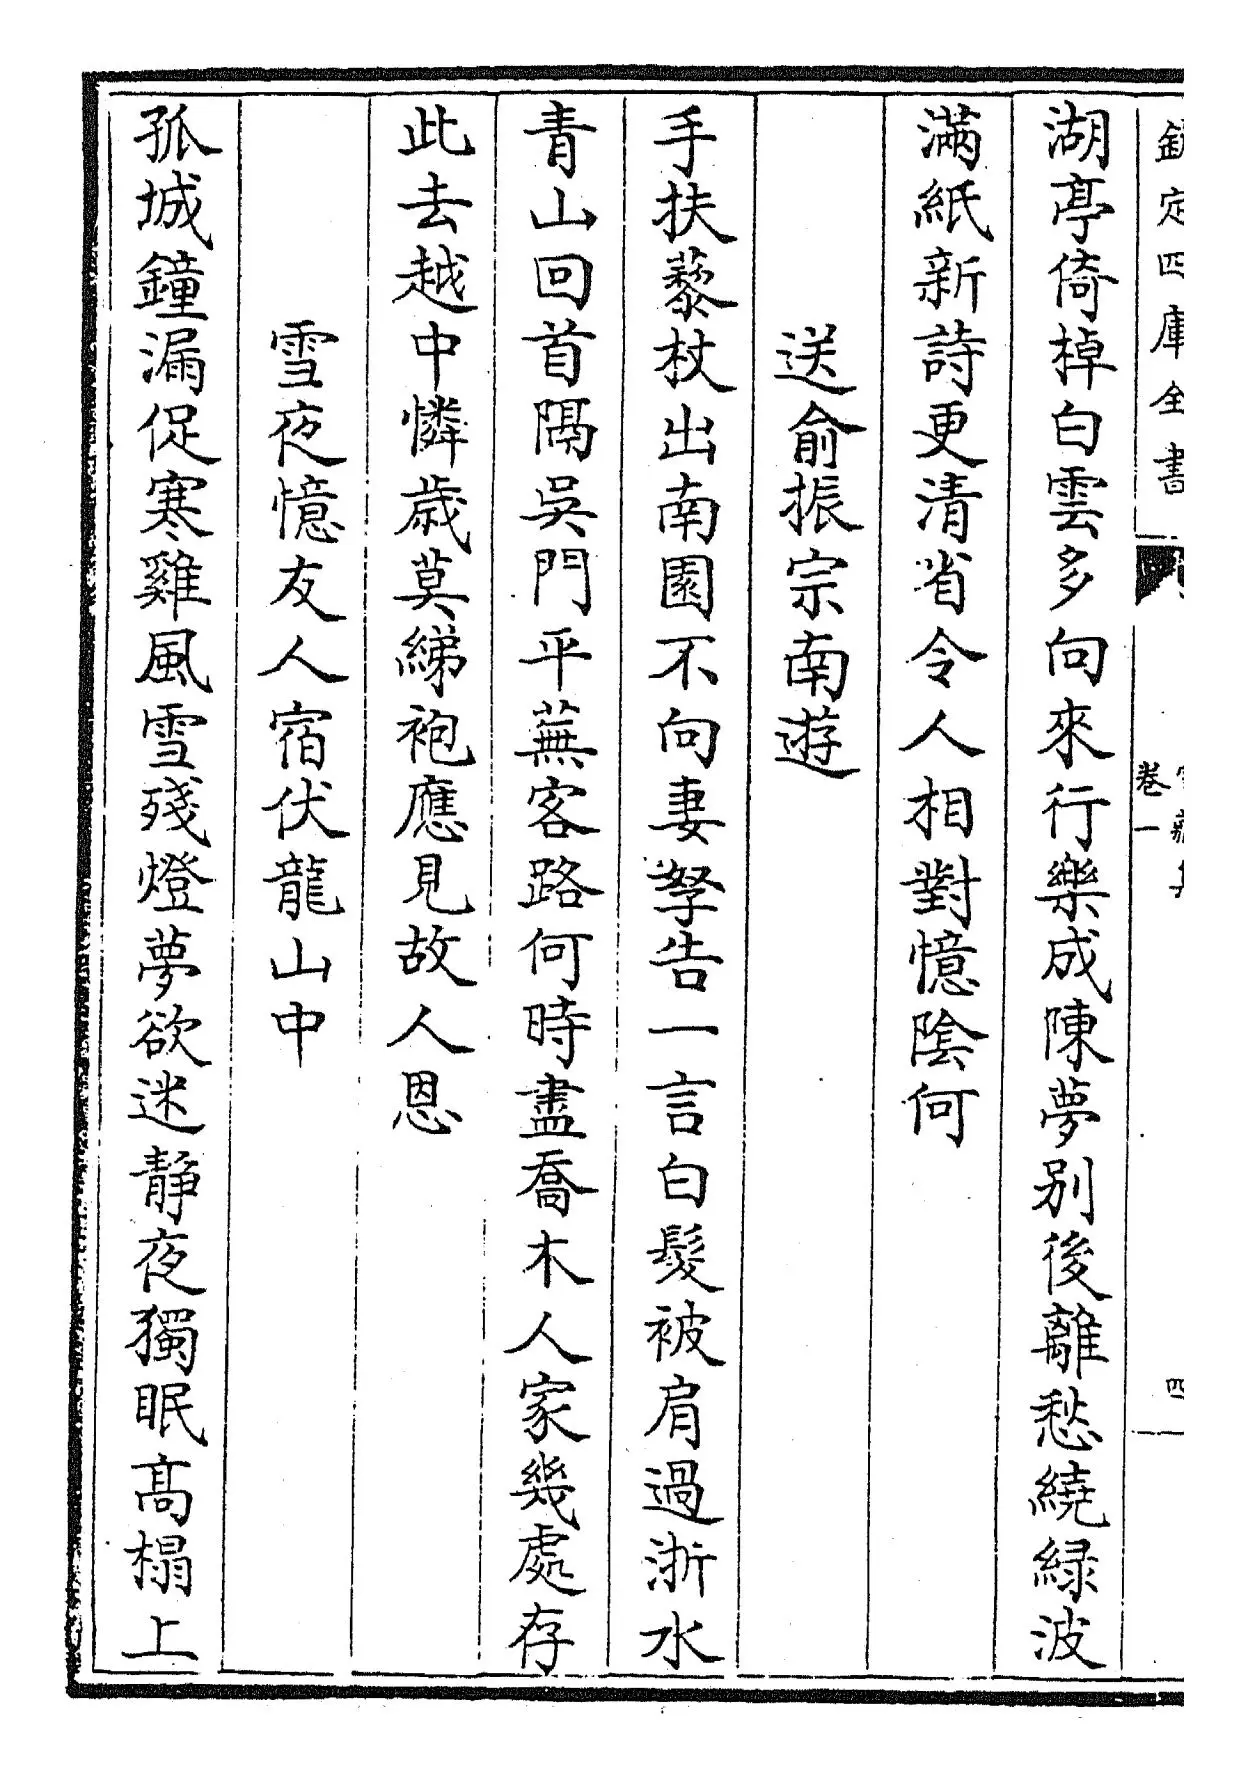 欽定四庫全書
卷一
四
湖亭倚棹白雲多向來行樂成陳夢别後離愁繞緑波
滿紙新詩更清省令人相對憶陰何
送俞振宗南遊
手扶藜杖出南園不向妻孥告一言白髮被肩過浙水
青山回首隔吳門平蕪客路何時盡喬木人家幾處存
此去越中憐歲莫綈袍應見故人恩
雪夜憶友人宿伏龍山中
孤城鐘漏促寒雞風雪殘燈夢欲迷静夜獨眠高榻上